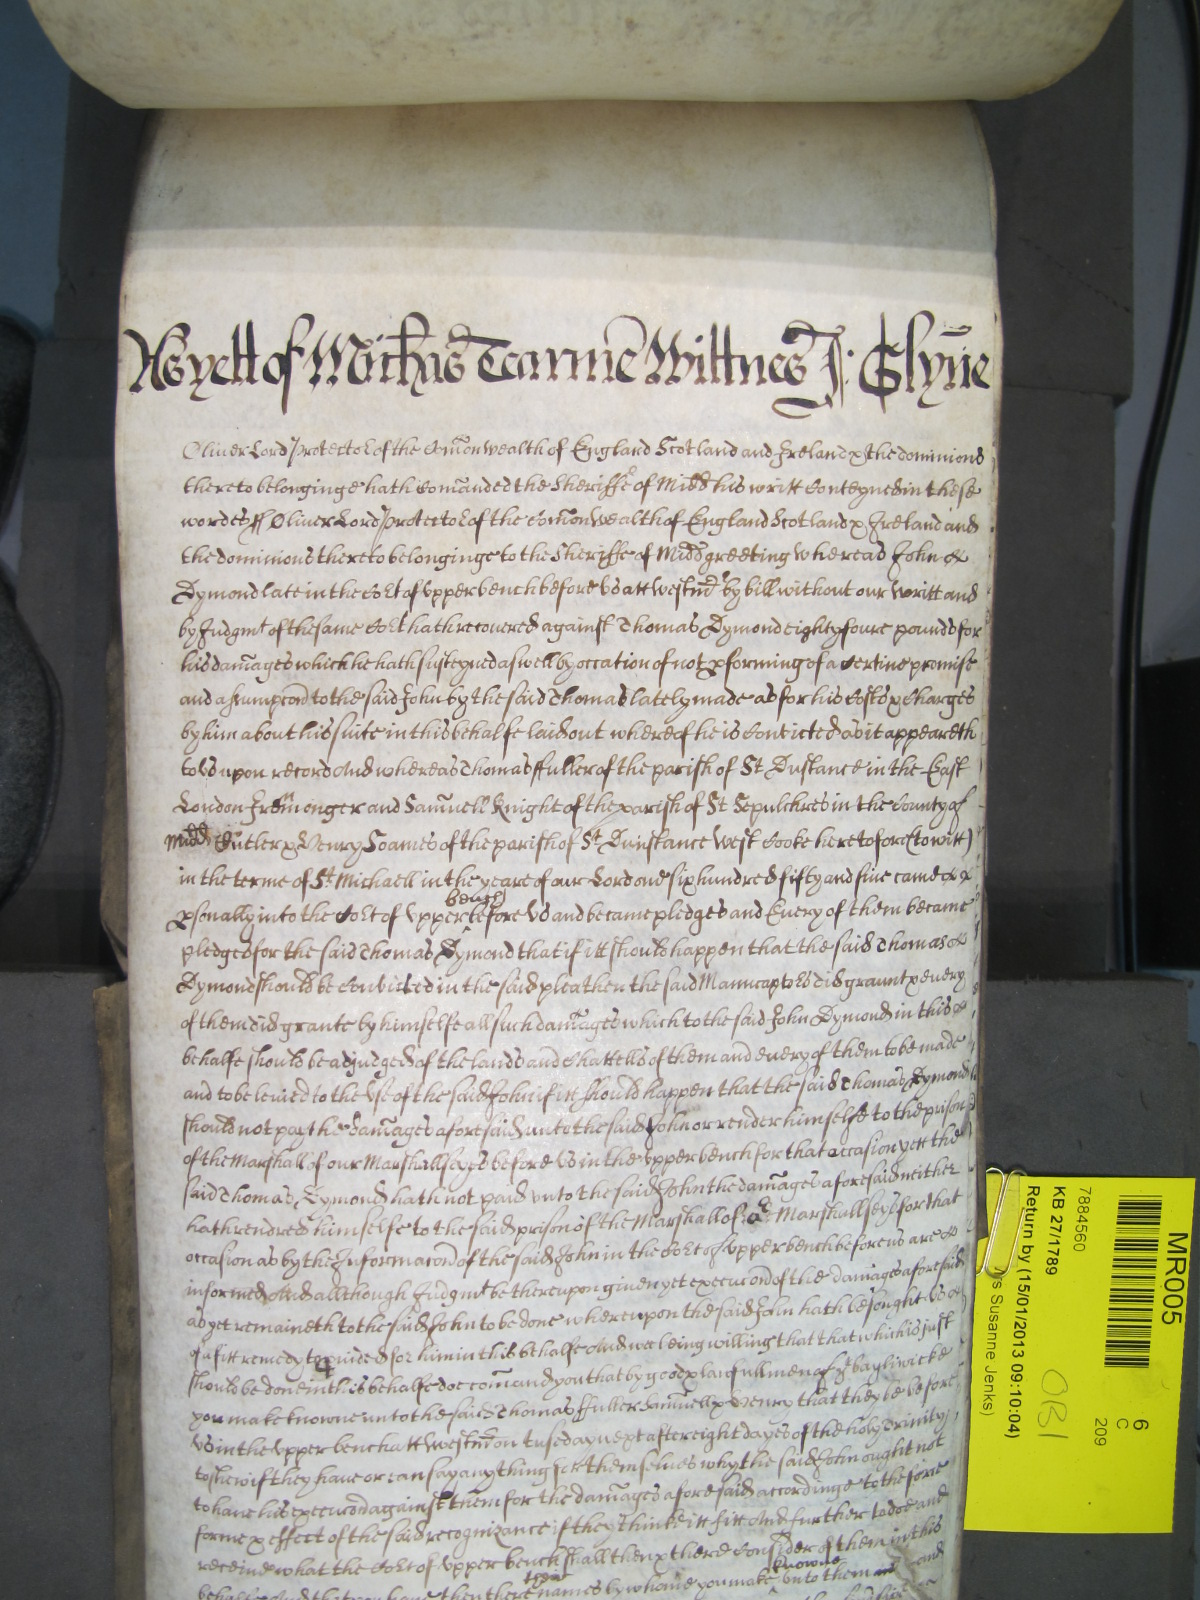 As yett of Mich͠is Tearme Wittnes J: Glyñe
Oliver Lord Protector of the Com̃onwealth of England Scotland and Ireland & the dominions
thereto belonginge hath com̃anded the Sheriffe of Midd his writt conteyned in these
wordes ss Oliver Lord Protector of the Com̃onwealth of England Scotland & Ireland and
the dominions thereto belonginge to the Sheriffe of Midd greeting whereas John
Dymond late in the Co͠rt of upper bench before us att Westm̃ by bill without our writt and
by Judgmt of the same Co͠rt hath recovered against Thomas Dymond eighty foure pounds for
his dam̃ages which he hath susteyned aswell by occation of not pforming of a certine promise
and assumpc͠on to the said John by the said Thomas lately made as for his costs & charges
by him about his suite in this behalfe laid out whereof he is convicted as it appeareth
to us upon record And whereas Thomas ffuller of the parish of St Dustance in the East
London Iremonger and Samuell Knight of the parish of St Sepulchres in the County of
Midd Cutler & Henry Soames of the parish of St Dunstance West Cooke heretofore (to witt)
in the terme of St Michaell in the yeare of our Lord one six hundred fifty and five came
psonally into the Co͠rt of upper bench before us and became pledges and every of them became
pledges for the said Thomas Dymond that if itt should happen that the said Thomas
Dymond should be convicted in the said plea then the said Manucaptors did graunt & every
of them did grante by himselfe all such dam̃ages which to the said John Dymond in this
behalfe should be adjudged of the lands and chattells of them and every of them to be made
and to be levied to the use of the said John if itt should happen that the said Thomas Dymond
should not pay the dam̃ages aforesaid unto the said John or render himselfe to the prison
of the Marshall of our Marshallseyes before us in the upper bench for that occasion yett the
said Thomas Dymond hath not paid unto the said John the dam̃ages aforesaid neither
hath rendred himselfe to the said prison of the Marshall of Marshallseys for that
occasion as by the Informac͠on of the said John in the Co͠rt of upper bench before us are
informed And although Judgmt be thereupon given yet execuc͠on of the dam̃ages aforesaid
as yet remaineth to the said John to be done whereupon the said John hath besought us
of a fitt remedy to pvided for him in this behalfe And wee being willing that that which is just
should be done in this behalfe doe com̃and you that by good & lawfull men of yr bayliwicke
you make knowne unto the said Thomas ffuller Samuell & Henry that they be before
us in the upper bench att Westm̃ on tuseday next after eight dayes of the holy Trinity
to shew if they have or can say any thing for themselves why the said John ought not
to have his execuc͠on against them for the dam̃ages aforesaid accordinge to the force
forme & effect of the said recognizance if they thinke itt fitt And further to doe and
receive what the Co͠rt of upper bench shall then & there consider of them in this
behalfe And that you have then there the names by whome you make knowne unto them and
MR005
6
C
209
7884560
KB 27/1789
Return by (15/01/2013 09:10:04)
Susanne Jenks)
OB1